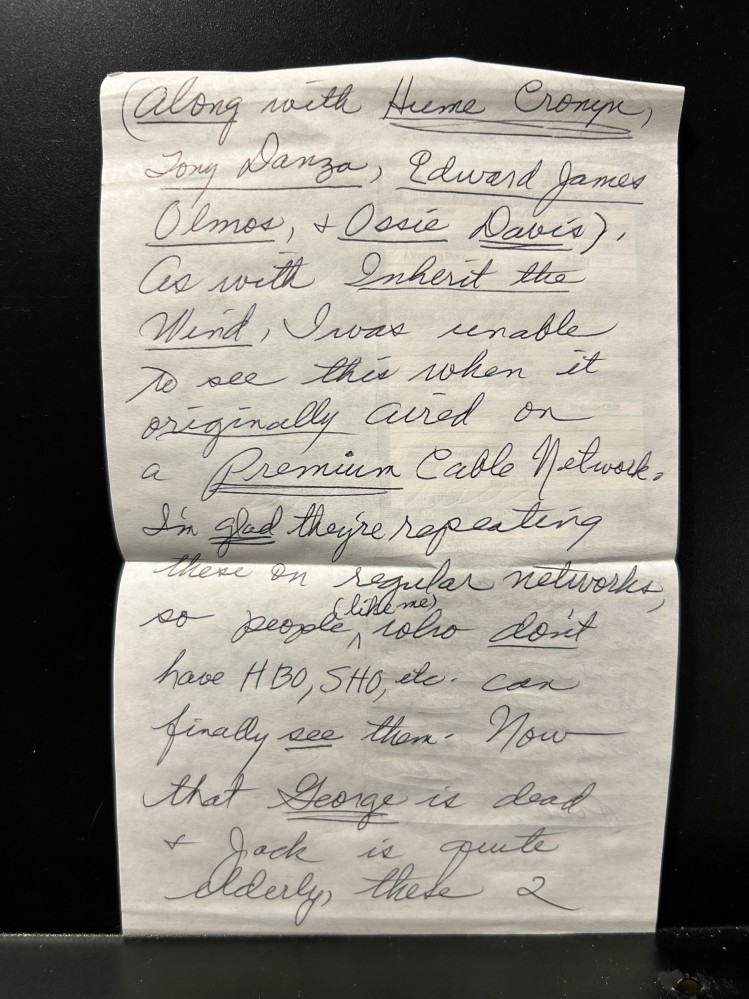 (along with Hume Cronyn,
Tony Danza, Edward James
Olmos, & Ossie Davis).
As with Inherit the
Wind, I was unable
to see this when it
originally aired on
a Premium Cable Network.
I'm glad they're repeating
these on regular networks,
so people (like me) who don't
have HBO, SHO, etc. can
finally see them. Now
that George is dead
& Jack is quite
elderly, these 2